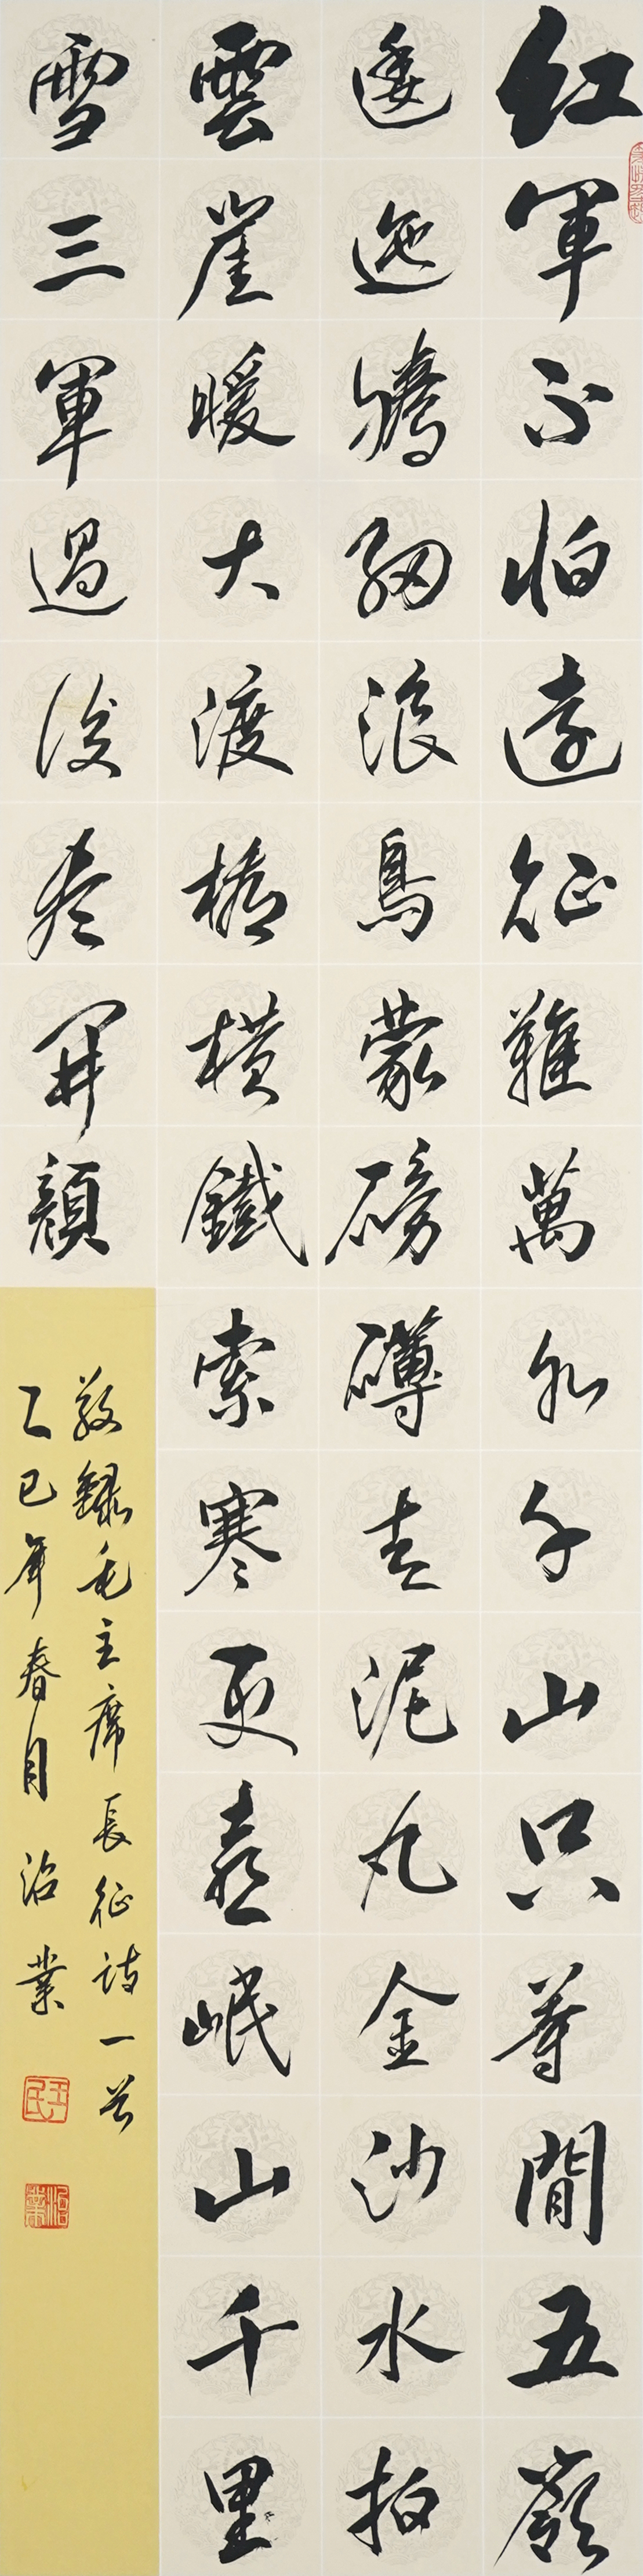 红軍不怕遠征難萬水千山只等閒五嶺
逶迤騰細浪烏蒙磅礴走泥丸金沙水拍
雲崖暖大渡橋橫鐵索寒更喜岷山千里
雪三軍過後盡開顏
敬錄毛主席長征詩一首
乙巳年春月 治業
治業